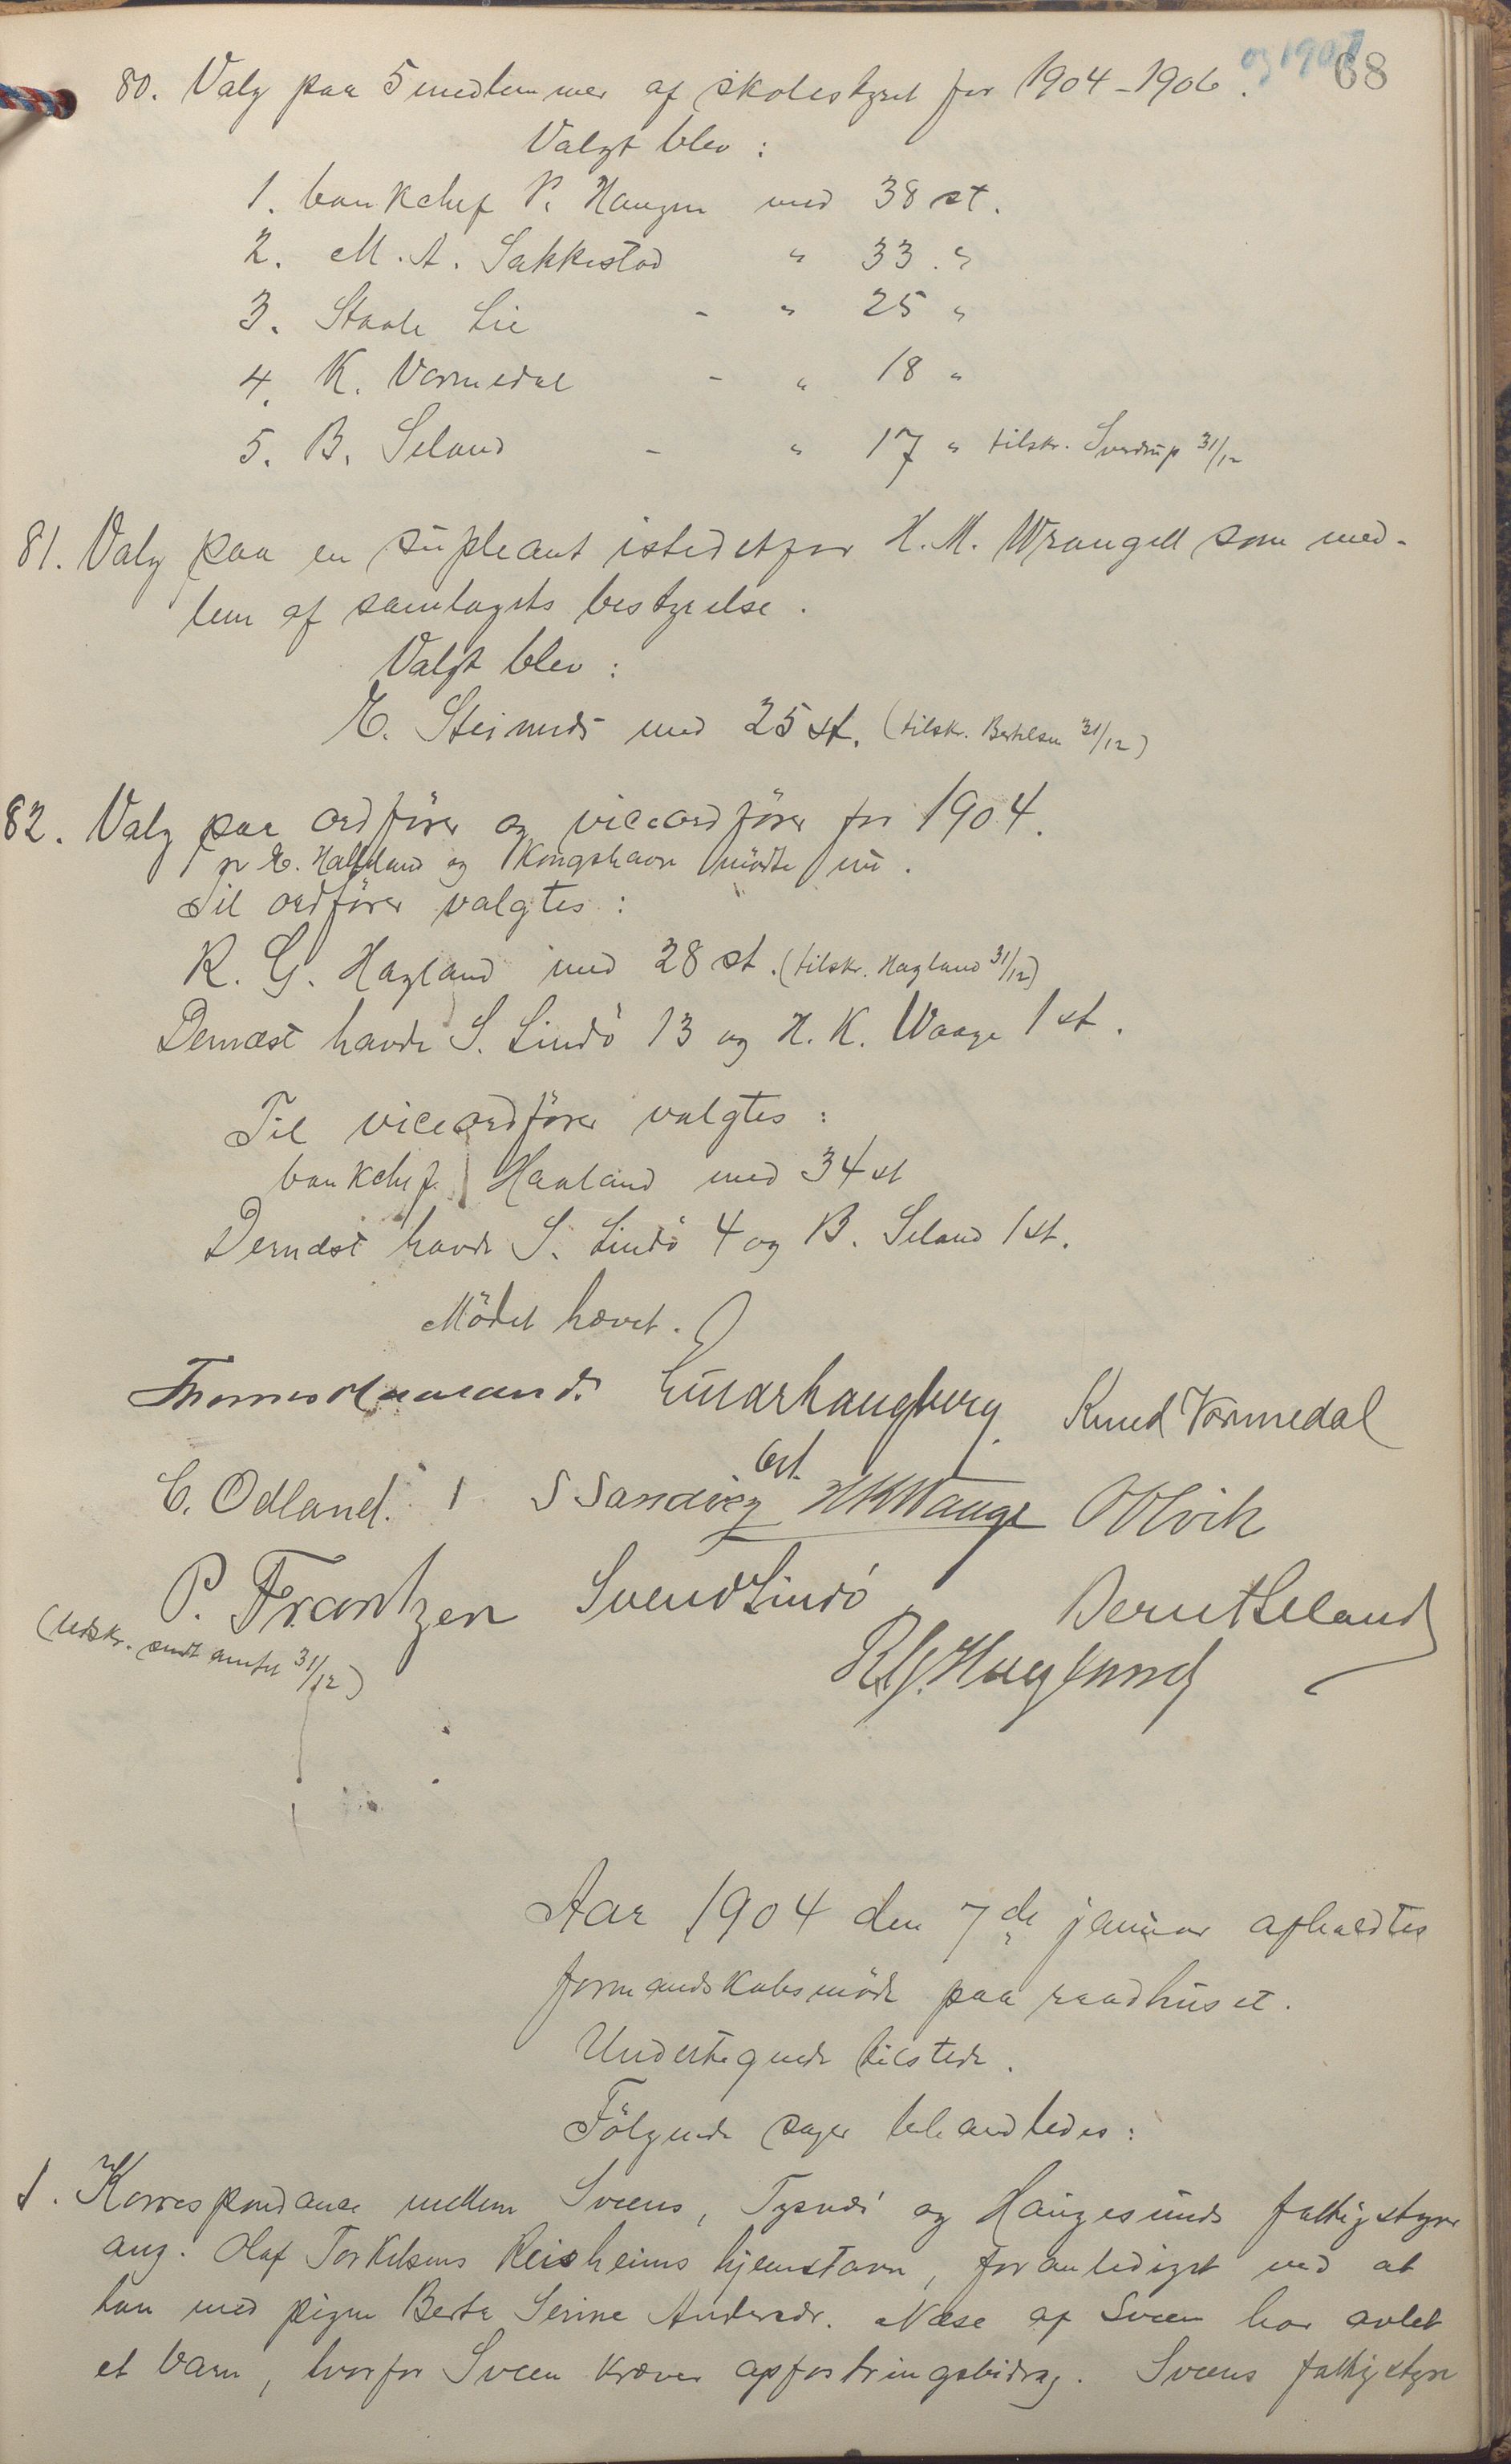 og 1907
68
80. Valg paa 5 medlemmer af skolestyret for 1904-1906.
Valgt blev :
1. bankchef P. Haugen med 38 st.
2. M. A. Sakkestad " 33. "
3. Staale Lie - " 25 "
4. K. Vormedal - " 18 "
5. B. Seland - " 17 " tilskr. Sverdrup 31/12
81. Valg paa en supleant istedetfor H. M. Wrangell som med-
lem af samlagets bestyrelse.
Valgt blev :
E. Steinnes med 25 st. (tilskr. Bertelsen 31/12)
82. Valg paa ordfører og viceordfører for 1904.
E. Halfland og Kongshavn mødte nu.
Til ordfører valgtes :
R. G. Hagland med 28 st. (tilskr. Hagland 31/12)
Dernæst havde S. Lindö 13 og H. K. Waage 1 st.
Til viceordfører valgtes :
bankchef Haaland med 34 st
Dernæst havde S. Lindö 4 og B. Seland 1 st.
Mödet hævet.
Thomas Haaland. Einar Haugberg Knud Vormedal
C. Odland. S Sandvig H K Waage O Olvik
P. Frantzen Svend Lindö Bernt Seland
(Udskr. sendt amtet 31/12)
R. G. Hagland
Aar 1904 den 7de januar afholdtes
formandskabsmöde paa raadhuset.
Undertegnede tilstede.
Fölgende sager behandledes :
1. Korrespondance mellem Sveens, Tysnes og Haugesunds fattigstyre
ang. Olaf Torkelsens Reisheims hjemstavn, foranlediget ved at
han med pigen Berte Serine Andersdr. Næse af Sveen har avlet
et barn, hvorfor Sveen kræver opfostringsbidrag. Sveens fattigstyre